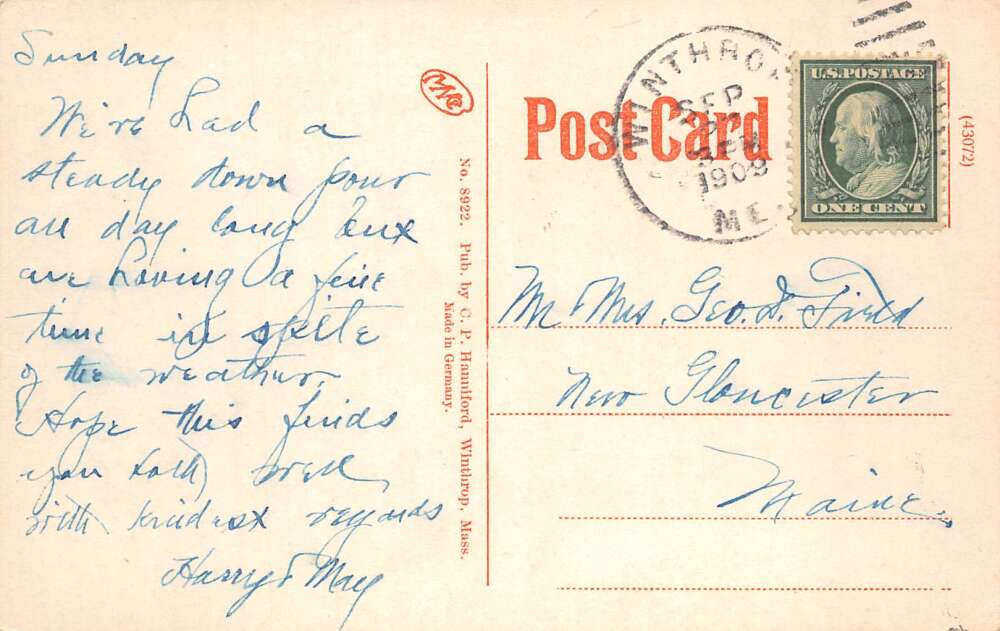 Sunday
We've had a
steady down pour
all day long but
are having a fine
time in spite
of the weather.
Hope this finds
you both well
with kindest regards
Harry & May
MR
No. 8922. Pub. by C. P. Hanniford, Winthrop, Mass.
Made in Germany.
Post Card
WINTHROP
SEP
3 PM
1909
ME.
U.S. POSTAGE
ONE CENT
(43072)
Mr Mrs. Geo. D. Field
New Gloucester
Maine.